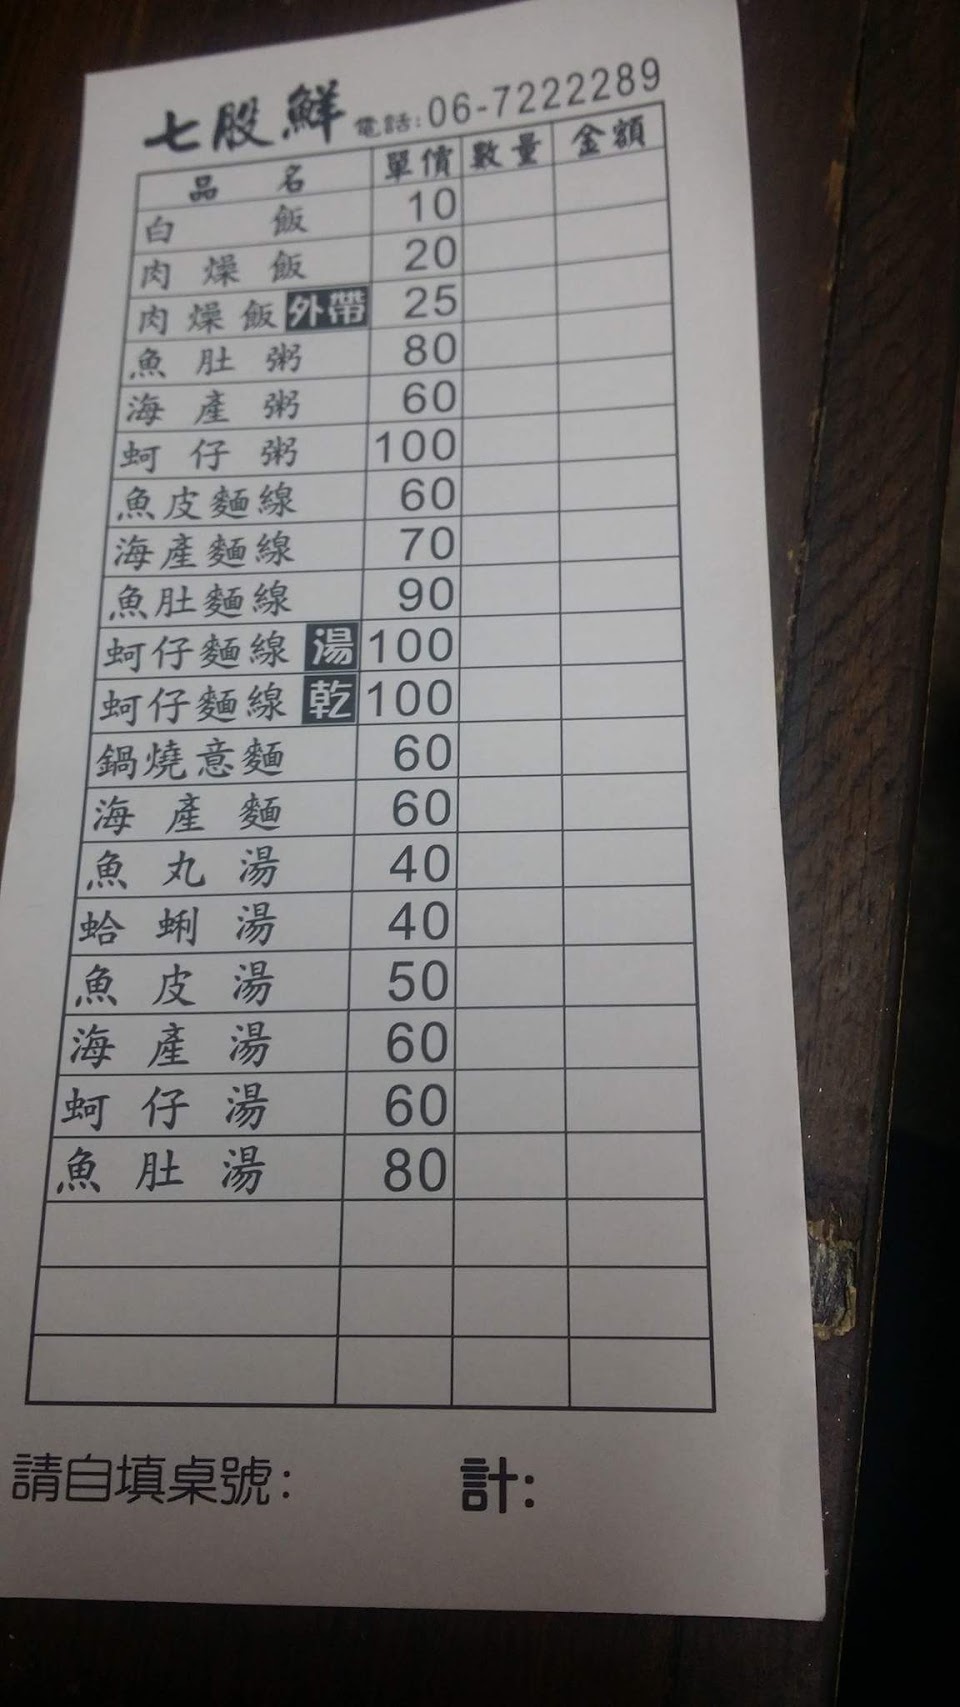 七股鮮 電話:06-7222289
品名 單價 數量 金額
白飯 10
肉燥飯 20
肉燥飯 外帶 25
魚肚粥 80
海產粥 60
蚵仔粥 100
魚皮麵線 60
海產麵線 70
魚肚麵線 90
蚵仔麵線 湯 100
蚵仔麵線 乾 100
鍋燒意麵 60
海產麵 60
魚丸湯 40
蛤蜊湯 40
魚皮湯 50
海產湯 60
蚵仔湯 60
魚肚湯 80
請自填桌號: 計: